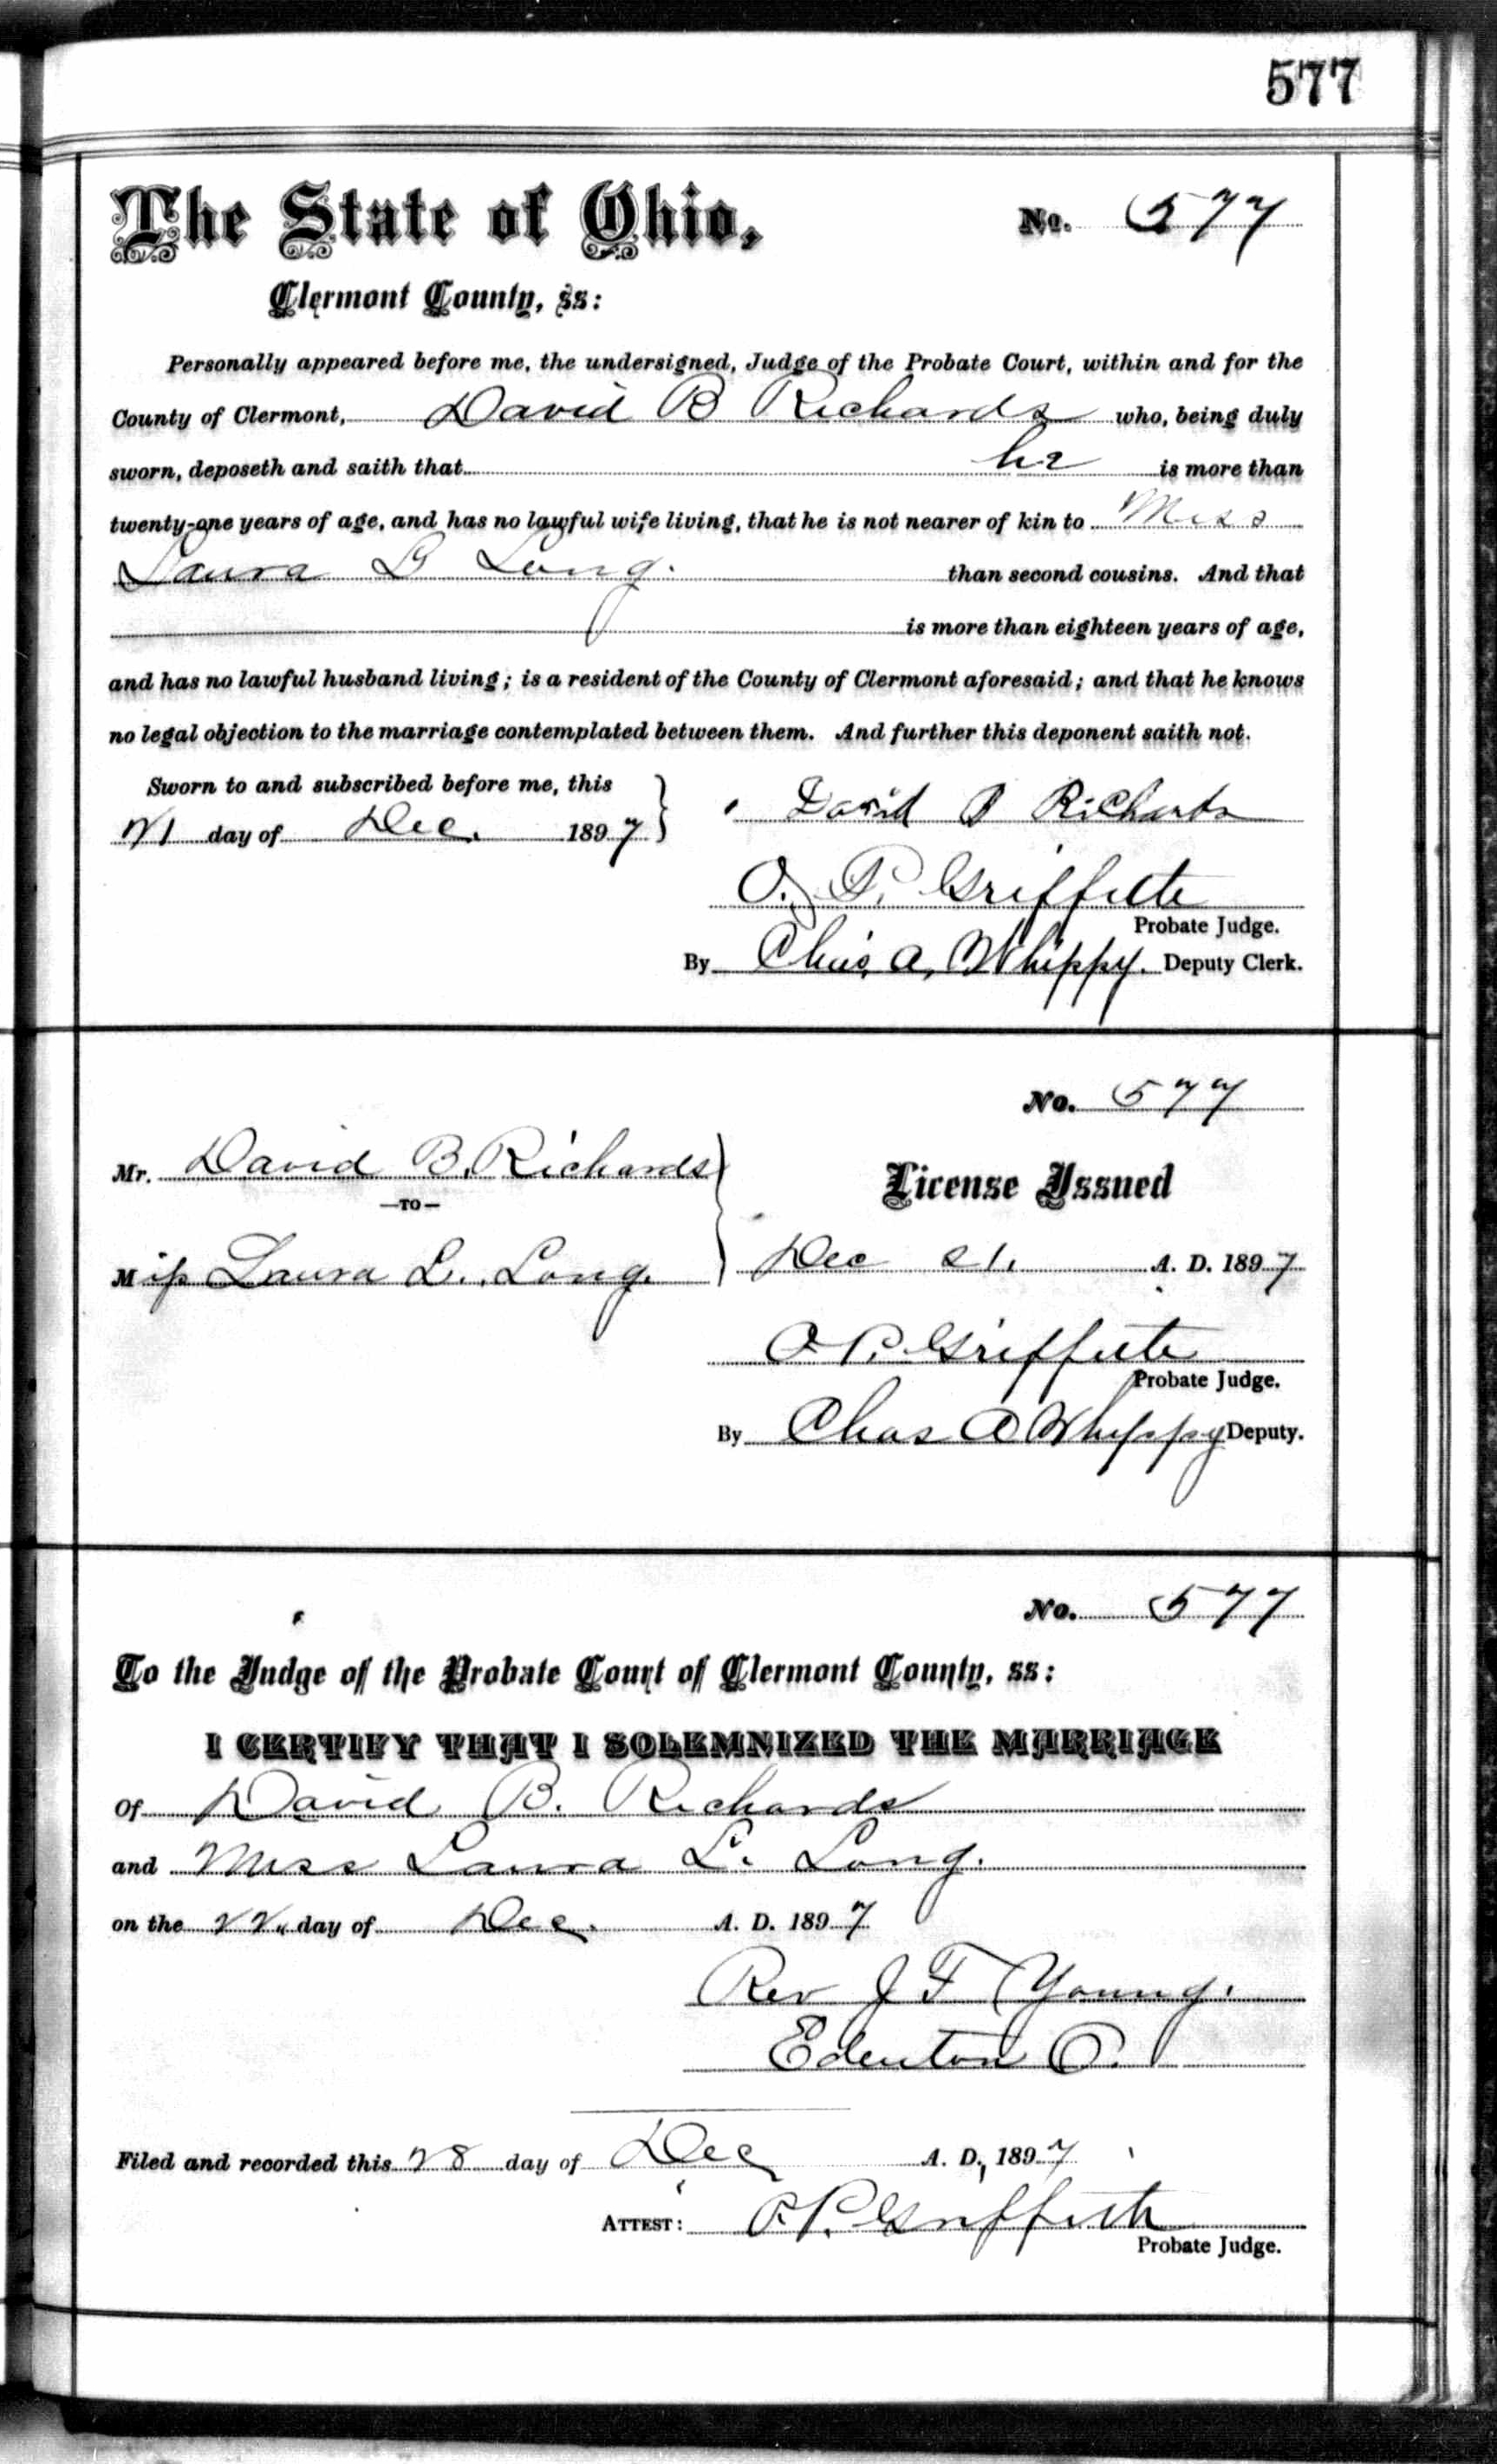 577
The State of Ohio, No. 577
Clermont County, ss:
Personally appeared before me, the undersigned, Judge of the Probate Court, within and for the
County of Clermont, David B Richards who, being duly
sworn, deposeth and saith that he is more than
twenty-one years of age, and has no lawful wife living, that he is not nearer of kin to Miss
Laura L Long. than second cousins. And that
is more than eighteen years of age,
and has no lawful husband living; is a resident of the County of Clermont aforesaid; and that he knows
no legal objection to the marriage contemplated between them. And further this deponent saith not.
Sworn to and subscribed before me, this
21 day of Dec. 1897
David B Richards
O. P. Griffith
Probate Judge.
By Chas. A. Whippy. Deputy Clerk.
No. 577
Mr. David B. Richards
—TO—
Miss Laura L. Long.
License Issued
Dec 21, A. D. 1897
O P. Griffith
Probate Judge.
By Chas A Whippy Deputy.
No. 577
To the Judge of the Probate Court of Clermont County, ss:
I CERTIFY THAT I SOLEMNIZED THE MARRIAGE
Of David B. Richards
and Miss Laura L. Long.
on the 22" day of Dec. A. D. 1897
Rev J F Young.
Edenton O.
Filed and recorded this 28 day of Dec A. D. 1897
ATTEST: O. P. Griffith
Probate Judge.